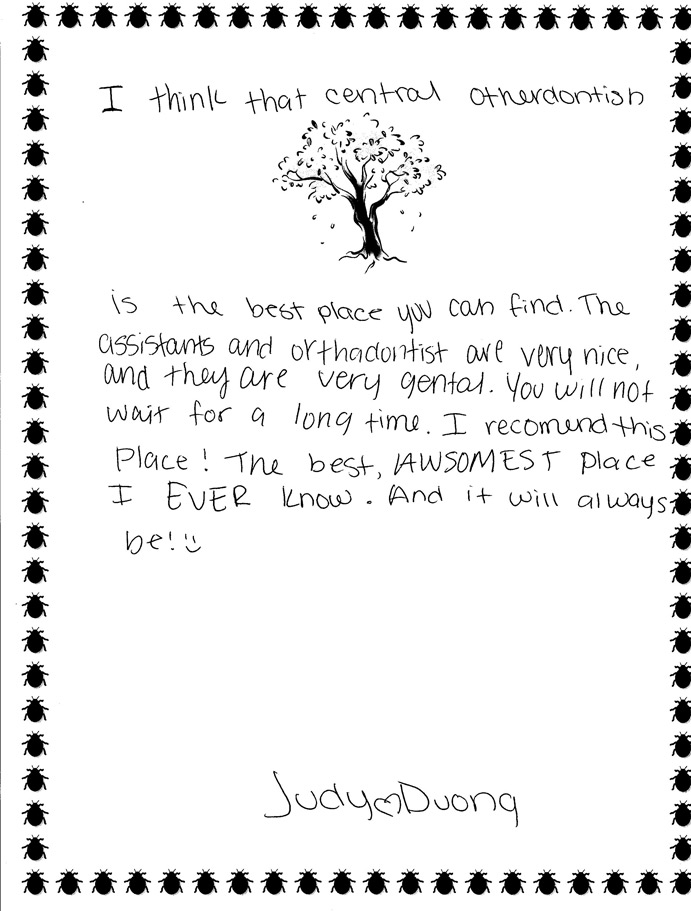 I think that central otherdontish
is the best place you can find. The
assistants and orthadontist are very nice,
and they are very gental. You will not
wait for a long time. I recomend this
Place! The best, AWSOMEST place
I EVER know. And it will always
be! :)
Judy♡Duong